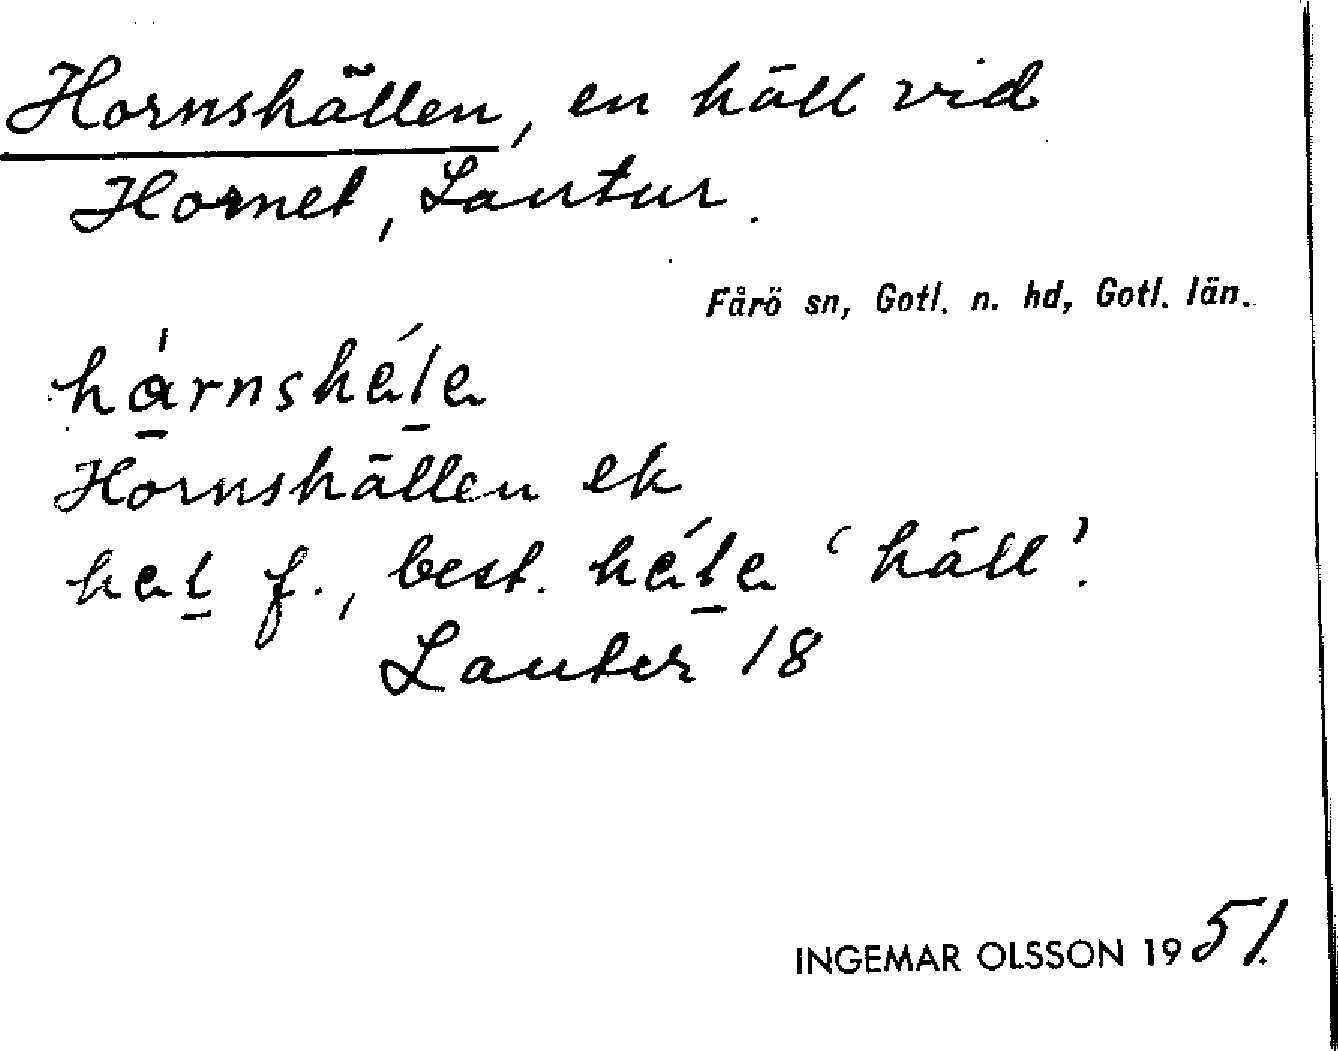 Hornshällen, en häll vid
Hornet, Lautur.
Fårö sn, Gotl. n. hd, Gotl. län.
hά̱rnshé̵l̠a
Hornshällen ek
hal̠ f., best. hál̠a 'häll'.
Lauter 18
INGEMAR OLSSON 1951.